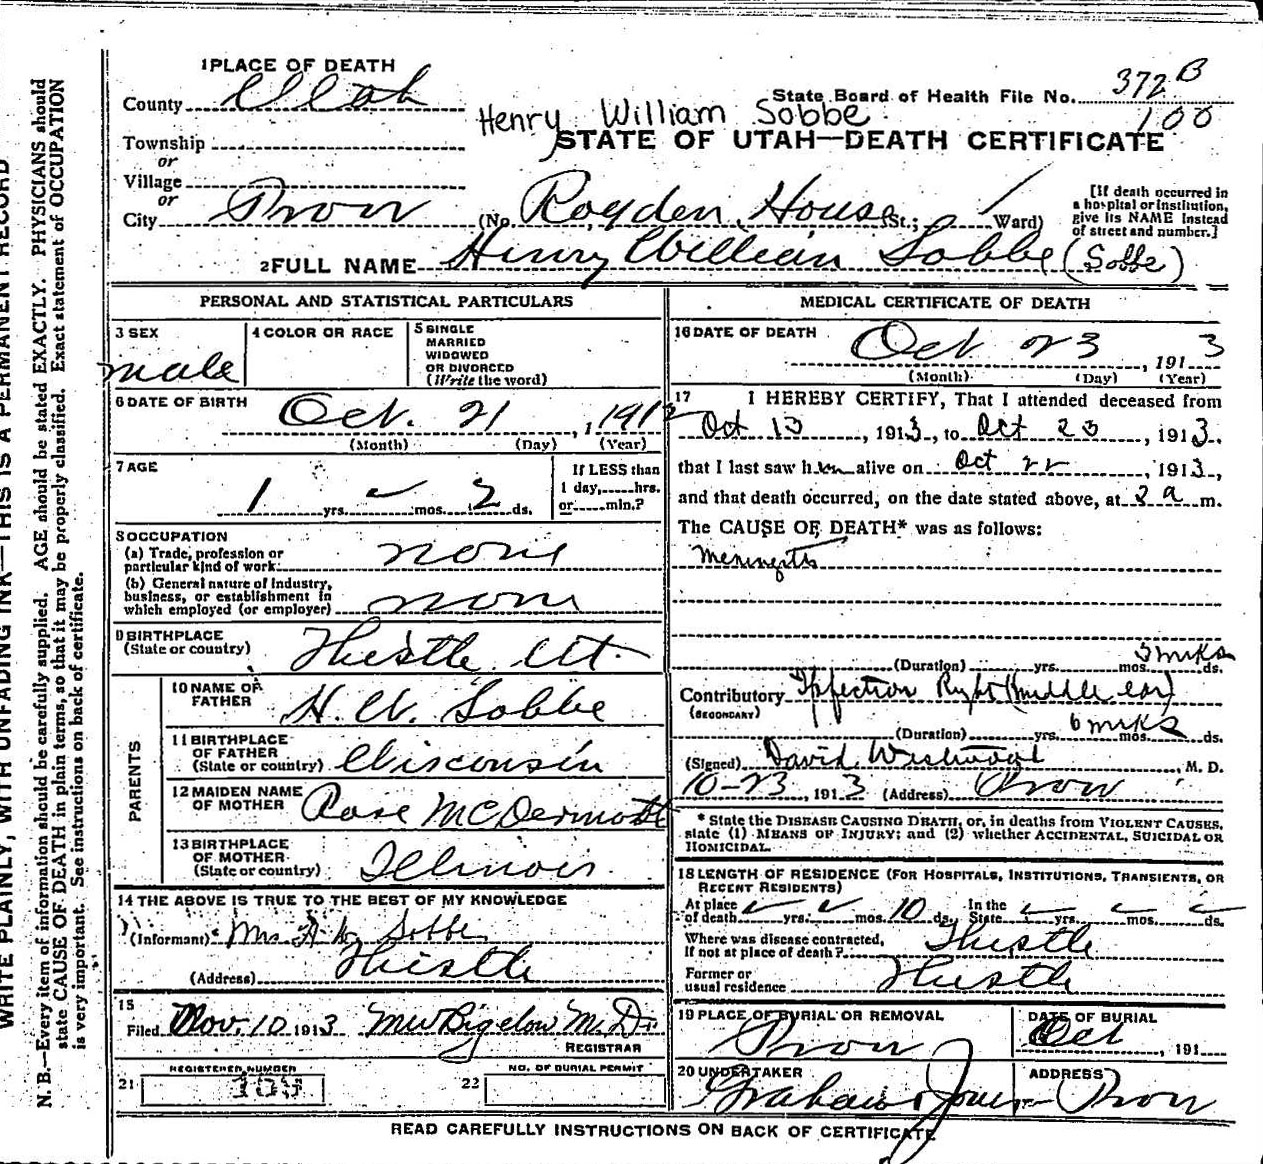 1 PLACE OF DEATH
County Utah
State Board of Health File No. 372 B
100
Henry William Sobbe
Township
or
STATE OF UTAH—DEATH CERTIFICATE
Village
or
City Provo (No. Royden House St.; Ward)
[If death occurred in a hospital or institution, give its NAME instead of street and number.]
2 FULL NAME Henry William Sobbe (Sobbe)
PERSONAL AND STATISTICAL PARTICULARS
3 SEX
male
4 COLOR OR RACE
5 SINGLE
MARRIED
WIDOWED
OR DIVORCED
(Write the word)
6 DATE OF BIRTH
Oct. 21, 1912
(Month) (Day) (Year)
7 AGE
1 yrs. mos. 2 ds.
If LESS than
1 day, hrs.
or min.?
8 OCCUPATION
(a) Trade, profession or
particular kind of work none
(b) General nature of industry,
business, or establishment in
which employed (or employer) none
9 BIRTHPLACE
(State or country) Thistle Ut.
PARENTS
10 NAME OF
FATHER H. W. Sobbe
11 BIRTHPLACE
OF FATHER
(State or country) Wisconsin
12 MAIDEN NAME
OF MOTHER Rose McDermott
13 BIRTHPLACE
OF MOTHER
(State or country) Illinois
14 THE ABOVE IS TRUE TO THE BEST OF MY KNOWLEDGE
(Informant) Mrs H W Sobbe
(Address) Thistle
15
Filed Nov. 10 1913 M W Bigelow M. D.
REGISTRAR
REGISTERED NUMBER
21
NO. OF BURIAL PERMIT
22
MEDICAL CERTIFICATE OF DEATH
16 DATE OF DEATH
Oct 23, 1913
(Month) (Day) (Year)
17 I HEREBY CERTIFY, That I attended deceased from
Oct 13, 1913, to Oct 23, 1913,
that I last saw him alive on Oct 22, 1913,
and that death occurred, on the date stated above, at 2 a m.
The CAUSE OF DEATH* was as follows:
Meningitis
(Duration) yrs. mos. 3 wks ds.
Contributory Infection Right (middle ear)
(SECONDARY)
(Duration) yrs. 6 wks mos. ds.
(Signed) David Westwood, M. D.
10-23, 1913 (Address) Provo
* State the DISEASE CAUSING DEATH, or, in deaths from VIOLENT CAUSES,
state (1) MEANS OF INJURY; and (2) whether ACCIDENTAL, SUICIDAL OR
HOMICIDAL.
18 LENGTH OF RESIDENCE (FOR HOSPITALS, INSTITUTIONS, TRANSIENTS, OR
RECENT RESIDENTS)
At place
of death yrs. mos. 10 ds. In the
State yrs. mos. ds.
Where was disease contracted,
if not at place of death? Thistle
Former or
usual residence Thistle
19 PLACE OF BURIAL OR REMOVAL
Provo
DATE OF BURIAL
Oct, 191
20 UNDERTAKER
Graham Jones
ADDRESS
Provo
READ CAREFULLY INSTRUCTIONS ON BACK OF CERTIFICATE
WRITE PLAINLY, WITH UNFADING INK—THIS IS A PERMANENT RECORD
N. B.—Every item of information should be carefully supplied. AGE should be stated EXACTLY. PHYSICIANS should
state CAUSE OF DEATH in plain terms, so that it may be properly classified. Exact statement of OCCUPATION
is very important. See instructions on back of certificate.